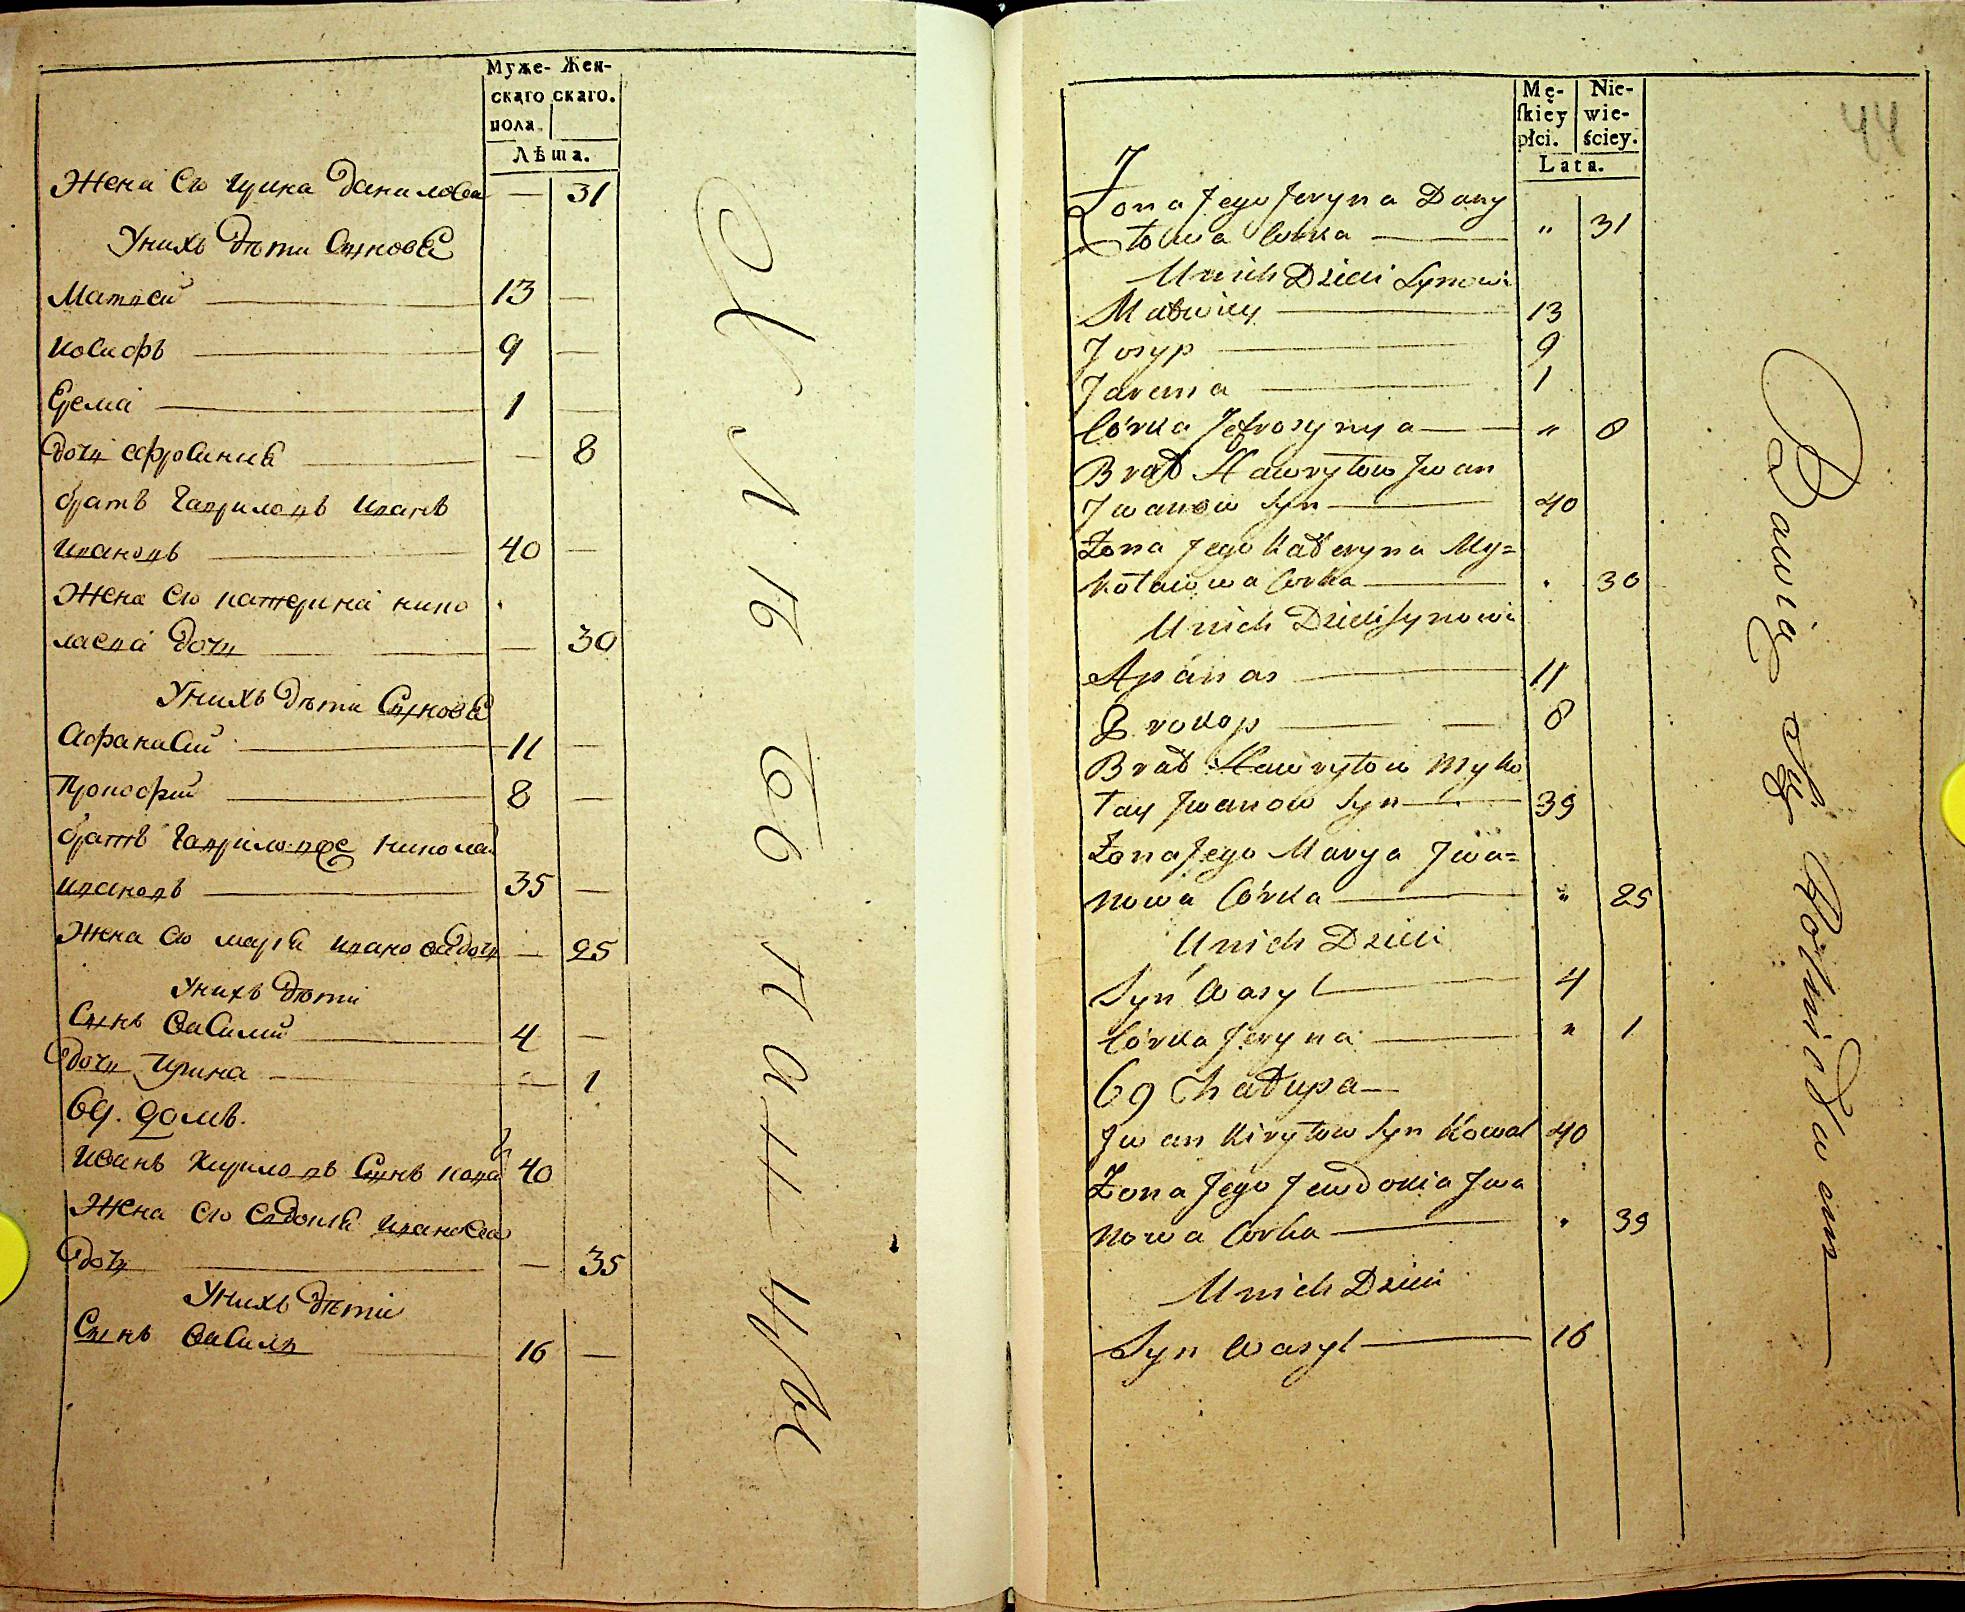 Муже- Жен-
скаго скаго.
пола.
Лѣта.
Жена Его Ирина Данилова — 31
У нихъ дѣти Сыновя
Матвей 13 —
Иосифъ 9 —
Ерема 1 —
Дочь Ефросиния — 8
братъ Гавриловъ Иванъ
Ивановъ 40 —
Жена Его Катерина Нико
лаева Дочь — 30
У нихъ дѣти Сыновя
Афанасий 11 —
Прокофий 8 —
братъ Гавриловъ Николай
Ивановъ 35 —
Жена Его Маря Иванова Дочь — 25
У нихъ дѣти
Сынъ Василий 4 —
Дочь Ирина — 1
69. домъ.
Иванъ Кириловъ Сынъ Ковал 40
Жена Его Евдокия Иванова
Дочь — 35
У нихъ дѣти
Сынъ Василь 16 —
44
Mę- Nie-
skiey wie-
płci. ściey.
Lata.
Żona Jego Jeryna Dany
łowa Corka " 31
U nich Dzieci Synowi
Matwiey 13
Josyp 9
Jarema 1
Córka Jefrosynya " 8
Brat Hawryłow Jwan
Jwanow Syn 40
Żona Jego Kateryna My=
kołaiowa Corka " 30
U nich Dzieci Synowi
Apanas 11
Prokop 8
Brat Hawryłow Myko
łay Jwanow Syn 39
Żona Jego Marya Jwa=
nowa Córka " 25
U nich Dzieci
Syn Wasyl 4
Córka Jeryna " 1
69 Chałupa
Jwan Kiryłow Syn Kowal 40
Żona Jego Jewdokia Jwa
nowa Corka " 39
U nich Dzieci
Syn Wasyl 16